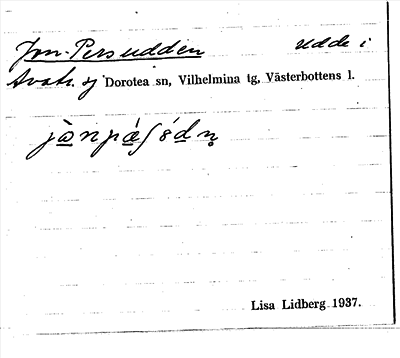 Jon-Persudden Udde i
Avatr. sj Dorotea sn, Vilhelmina tg, Västerbottens l.
Lisa Lidberg 1937.